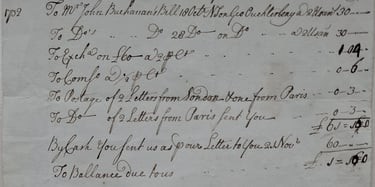 1752 To Mr John Buchanans Bill 18 Octr N:S on Geo Buckler Esq a 2 Usan: 30 -
To Do's Do 28 Do on Do a 2 Usan 30
To Excha on £60 a 2 p Ct 1.04
To Comso a p Ct 0-6
To Postage of 2 Letters from London & one from Paris 0-3
To Do of 2 Letters from Paris sent You 0-3
£61=
By Cash You sent us as p your Letter to You 21 Novr 60
To Ballance due to us £1=